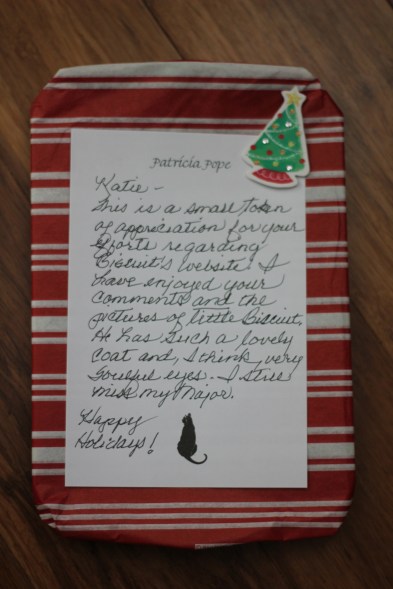 Patricia Pope
Katie -
This is a small token
of appreciation for your
efforts regarding
Biscuit's website. I
have enjoyed your
comments and the
pictures of little Biscuit.
He has such a lovely
coat and, I think, very
soulful eyes. I still
miss my Major.
Happy
Holidays!